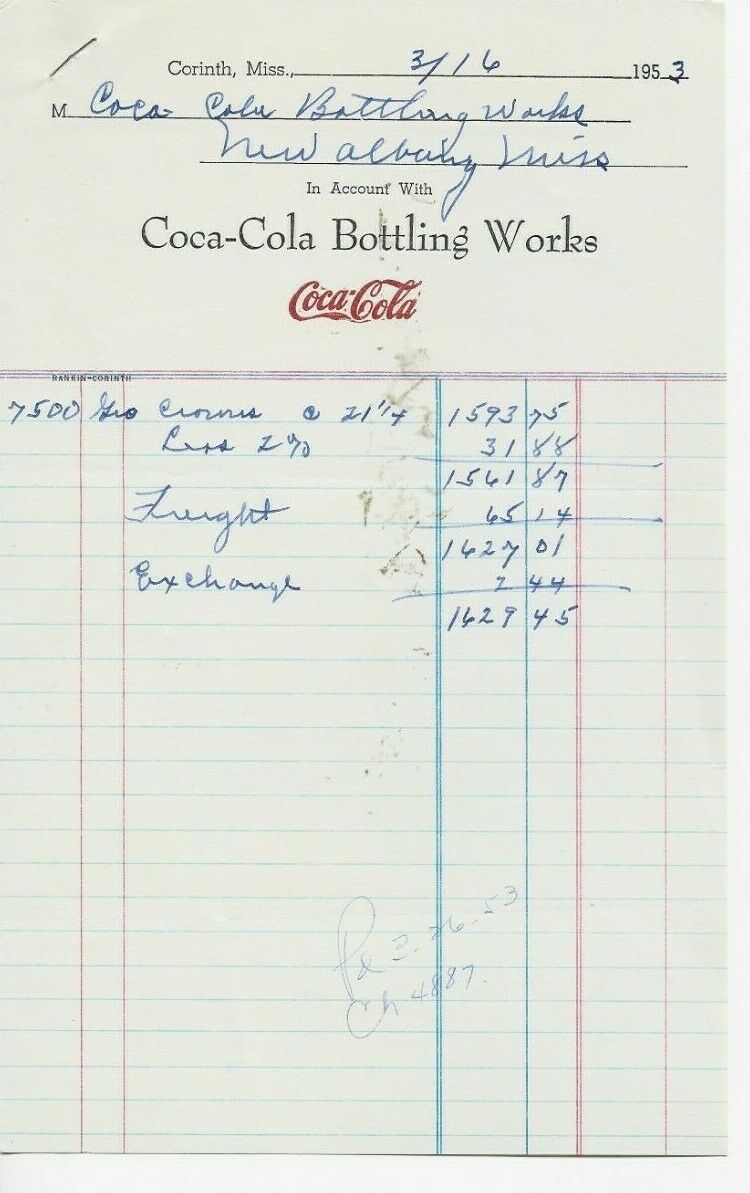 Corinth, Miss., 3/16 1953
M Coca-Cola Bottling Works
New Albany Miss
In Account With
Coca-Cola Bottling Works
Coca-Cola
RANKIN-CORINTH
7500 Gro Crowns @ 21 1/4 1593 75
Less 2% 31 88
1561 87
Freight 65 14
1627 01
Exchange 2 44
1629 45
Pd 3-26-53
Ch 4887